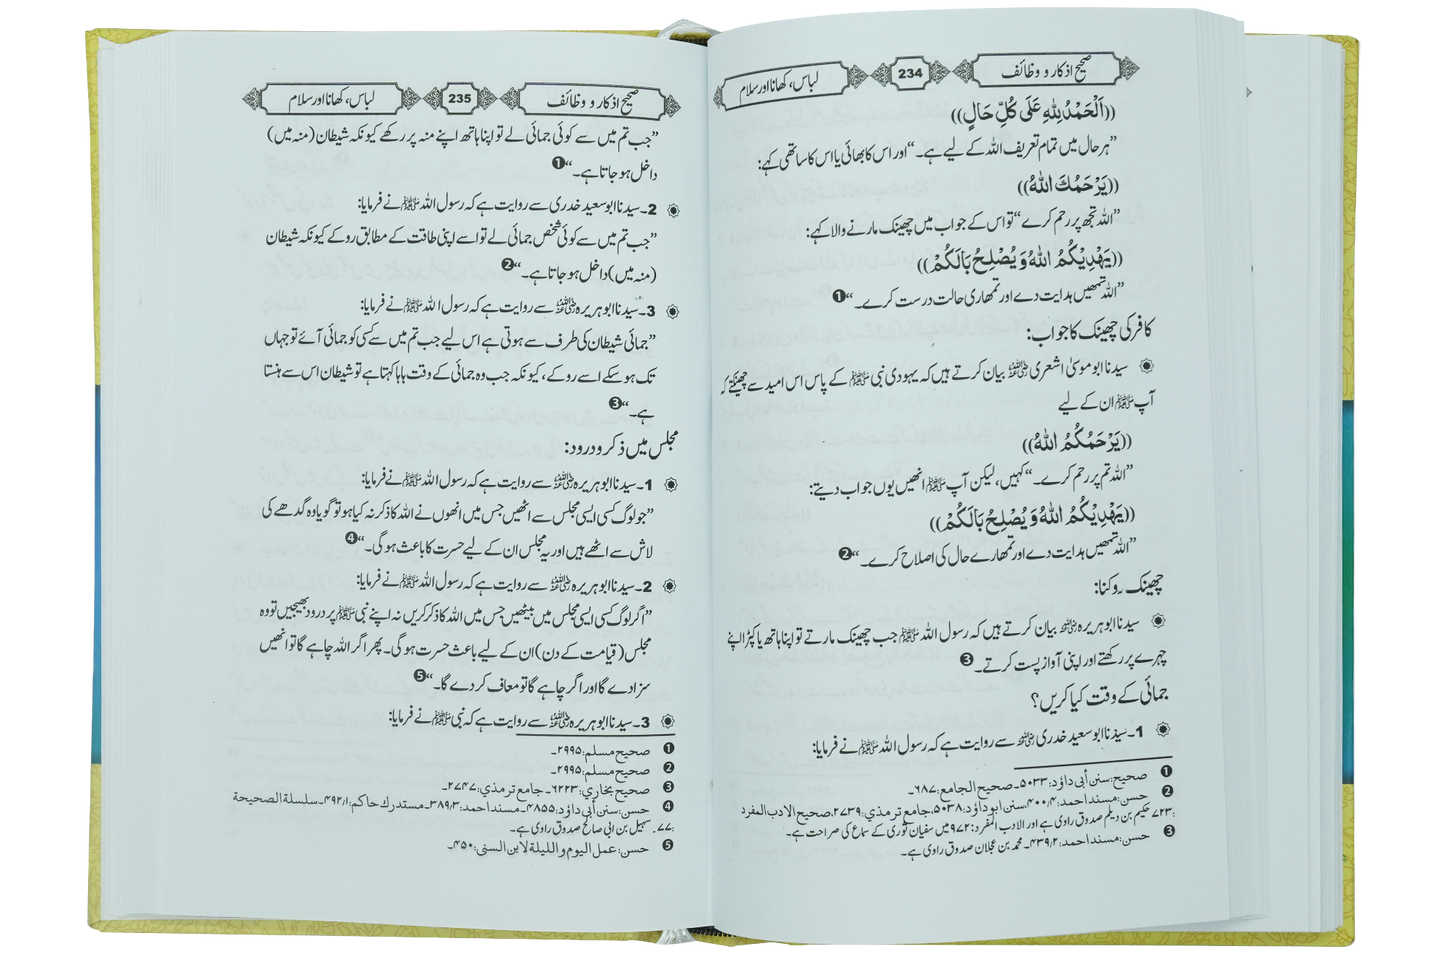 صحیح اذکار و وظائف 234 لباس، کھانا اور سلام
((اَلْحَمْدُ لِلّٰہِ عَلٰی کُلِّ حَالٍ))
”ہر حال میں تمام تعریف اللہ کے لیے ہے۔“ اور اس کا بھائی یا اس کا ساتھی کہے:
((یَرْحَمُكَ اللّٰهُ))
”اللہ تجھ پر رحم کرے“ تو اس کے جواب میں چھینک مارنے والا کہے:
((یَهْدِیْکُمُ اللّٰهُ وَ یُصْلِحُ بَالَکُمْ))
”اللہ تمھیں ہدایت دے اور تمھاری حالت درست کرے۔“ ❶
کافر کی چھینک کا جواب:
سیدنا ابو موسیٰ اشعری رضی اللہ عنہ بیان کرتے ہیں کہ یہودی نبی ﷺ کے پاس اس امید سے چھینکتے کہ
آپ ﷺ ان کے لیے
((یَرْحَمُکُمُ اللّٰهُ))
”اللہ تم پر رحم کرے۔“ کہیں، لیکن آپ ﷺ انھیں یوں جواب دیتے:
((یَهْدِیْکُمُ اللّٰهُ وَ یُصْلِحُ بَالَکُمْ))
”اللہ تمھیں ہدایت دے اور تمھارے حال کی اصلاح کرے۔“ ❷
چھینک روکنا:
سیدنا ابو ہریرہ رضی اللہ عنہ بیان کرتے ہیں کہ رسول اللہ ﷺ جب چھینک مارتے تو اپنا ہاتھ یا کپڑا اپنے
چہرے پر رکھتے اور اپنی آواز پست کرتے۔ ❸
جمائی کے وقت کیا کریں؟
1۔ سیدنا ابو سعید خدری رضی اللہ عنہ سے روایت ہے کہ رسول اللہ ﷺ نے فرمایا:
❶ صحیح: سنن أبی داؤد: ۵۰۳۳۔ صحیح الجامع: ۶۸۷۔
❷ حسن: مسند احمد: ۴۰۰/۴، سنن ابو داؤد: ۵۰۳۸، جامع ترمذی: ۲۷۳۹، صحیح الادب المفرد
:۷۲۳ حکیم بن دیلم صدوق راوی ہے اور الادب المفرد: ۹۷۲ میں سفیان ثوری کے سماع کی صراحت ہے۔
❸ حسن: مسند احمد: ۴۳۹/۲۔ محمد بن عجلان صدوق راوی ہے۔
صحیح اذکار و وظائف 235 لباس، کھانا اور سلام
”جب تم میں سے کوئی جمائی لے تو اپنا ہاتھ اپنے منہ پر رکھے کیونکہ شیطان (منہ میں)
داخل ہو جاتا ہے۔“ ❶
2۔ سیدنا ابو سعید خدری سے روایت ہے کہ رسول اللہ ﷺ نے فرمایا:
”جب تم میں سے کوئی شخص جمائی لے تو اسے اپنی طاقت کے مطابق روکے کیونکہ شیطان
(منہ میں) داخل ہو جاتا ہے۔“ ❷
3۔ سیدنا ابو ہریرہ رضی اللہ عنہ سے روایت ہے کہ رسول اللہ ﷺ نے فرمایا:
”جمائی شیطان کی طرف سے ہوتی ہے اس لیے جب تم میں سے کسی کو جمائی آئے تو جہاں
تک ہو سکے اسے روکے، کیونکہ جب وہ جمائی کے وقت ہاہا کہتا ہے تو شیطان اس سے ہنستا
ہے۔“ ❸
مجلس میں ذکر و درود:
1۔ سیدنا ابو ہریرہ رضی اللہ عنہ سے روایت ہے کہ رسول اللہ ﷺ نے فرمایا:
”جو لوگ کسی ایسی مجلس سے اٹھیں جس میں انھوں نے اللہ کا ذکر نہ کیا ہو تو گویا وہ گدھے کی
لاش سے اٹھے ہیں اور یہ مجلس ان کے لیے حسرت کا باعث ہوگی۔“ ❹
2۔ سیدنا ابو ہریرہ رضی اللہ عنہ سے روایت ہے کہ رسول اللہ ﷺ نے فرمایا:
”اگر لوگ کسی ایسی مجلس میں بیٹھیں جس میں اللہ کا ذکر کریں نہ اپنے نبی ﷺ پر درود بھیجیں تو وہ
مجلس (قیامت کے دن) ان کے لیے باعث حسرت ہوگی۔ پھر اگر اللہ چاہے گا تو انھیں
سزا دے گا اور اگر چاہے گا تو معاف کر دے گا۔“ ❺
3۔ سیدنا ابو ہریرہ رضی اللہ عنہ سے روایت ہے کہ نبی ﷺ نے فرمایا:
❶ صحیح مسلم: ۲۹۹۵۔
❷ صحیح مسلم: ۲۹۹۵۔
❸ صحیح بخاري: ۶۲۲۳۔ جامع ترمذي: ۲۷۴۷۔
❹ حسن: سنن أبی داؤد: ۴۸۵۵۔ مسند احمد: ۳۸۹/۳۔ مستدرك حاكم: ۴۹۲/۱۔ سلسلة الصحیحة
:۷۷۔ سہیل بن ابی صالح صدوق راوی ہے۔
❺ حسن: عمل الیوم و اللیلة لابن السنی: ۴۵۰۔